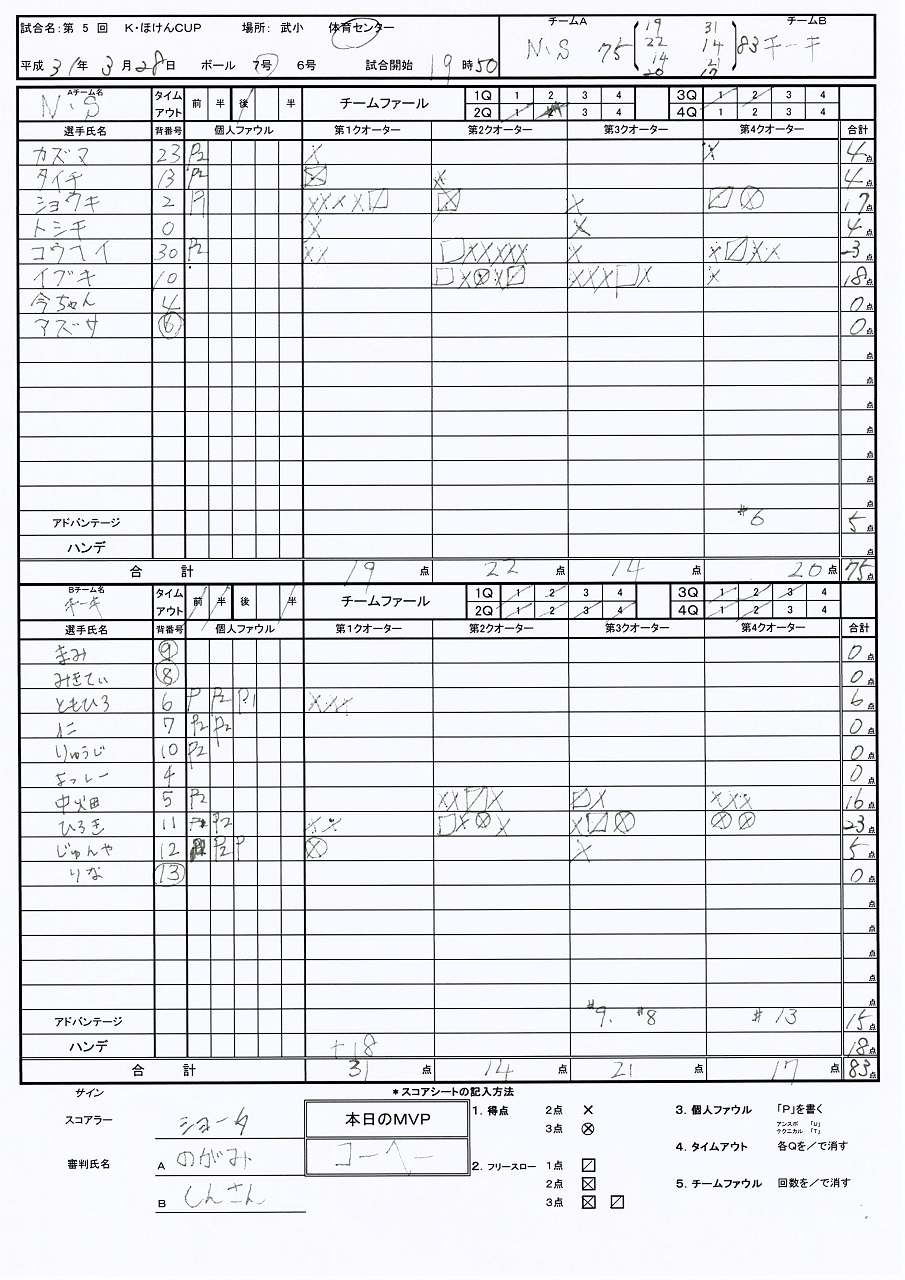 試合名:第 5 回 K・ほけんCUP 場所: 武小 体育センター
平成 31 年 3 月 28 日 ボール 7号 6号 試合開始 19 時 50
チームA チームB
N・S 75 83 チーキ
19 31
22 14
14 21
20 17
Aチーム名 N・S タイムアウト 前 半 後 半 チームファール 1Q 1 2 3 4 3Q 1 2 3 4
2Q 1 2 3 4 4Q 1 2 3 4
選手氏名 背番号 個人ファウル 第1クオーター 第2クオーター 第3クオーター 第4クオーター 合計
カズマ 23 P2 X X 4点
タイチ 13 P2 X 4点
ショウキ 2 P XXXX X 17点
トシキ 0 X X 4点
コウヘイ 30 P2 XX XXXXX X X XX 点
イブキ 10 X X XXX X X 18点
今ちゃん 4 0点
アズサ 6 0点
点
点
点
点
点
点
点
アドバンテージ #6 5点
ハンデ 点
合 計 19 点 22 点 14 点 20 点 75点
Bチーム名 チーキ タイムアウト 前 半 後 半 チームファール 1Q 1 2 3 4 3Q 1 2 3 4
2Q 1 2 3 4 4Q 1 2 3 4
選手氏名 背番号 個人ファウル 第1クオーター 第2クオーター 第3クオーター 第4クオーター 合計
まみ 9 0点
みきてぃ 8 0点
ともひろ 6 P P2 P1 XXX 6点
7 P2 P2 0点
りゅうじ 10 P2 0点
よっしー 4 0点
中畑 5 P2 XX X X XXX 16点
ひろき 11 P2 XX X X X 23点
じゅんや 12 P2 P X 5点
りな 13 0点
点
点
点
点
点
アドバンテージ #9. #8 #13 15点
ハンデ +18 18点
合 計 31 点 14 点 21 点 17 点 83点
サイン
スコアラー ショータ
審判氏名 A のがみ
B しんさん
本日のMVP
コーヘー
*スコアシートの記入方法
1. 得点 2点 X
3点 ⊗
2. フリースロー 1点 ⍁
2点 ☒
3点 ☒ ⍁
3. 個人ファウル 「P」を書く
アンスポ 「U」
テクニカル 「T」
4. タイムアウト 各Qを/で消す
5. チームファウル 回数を/で消す